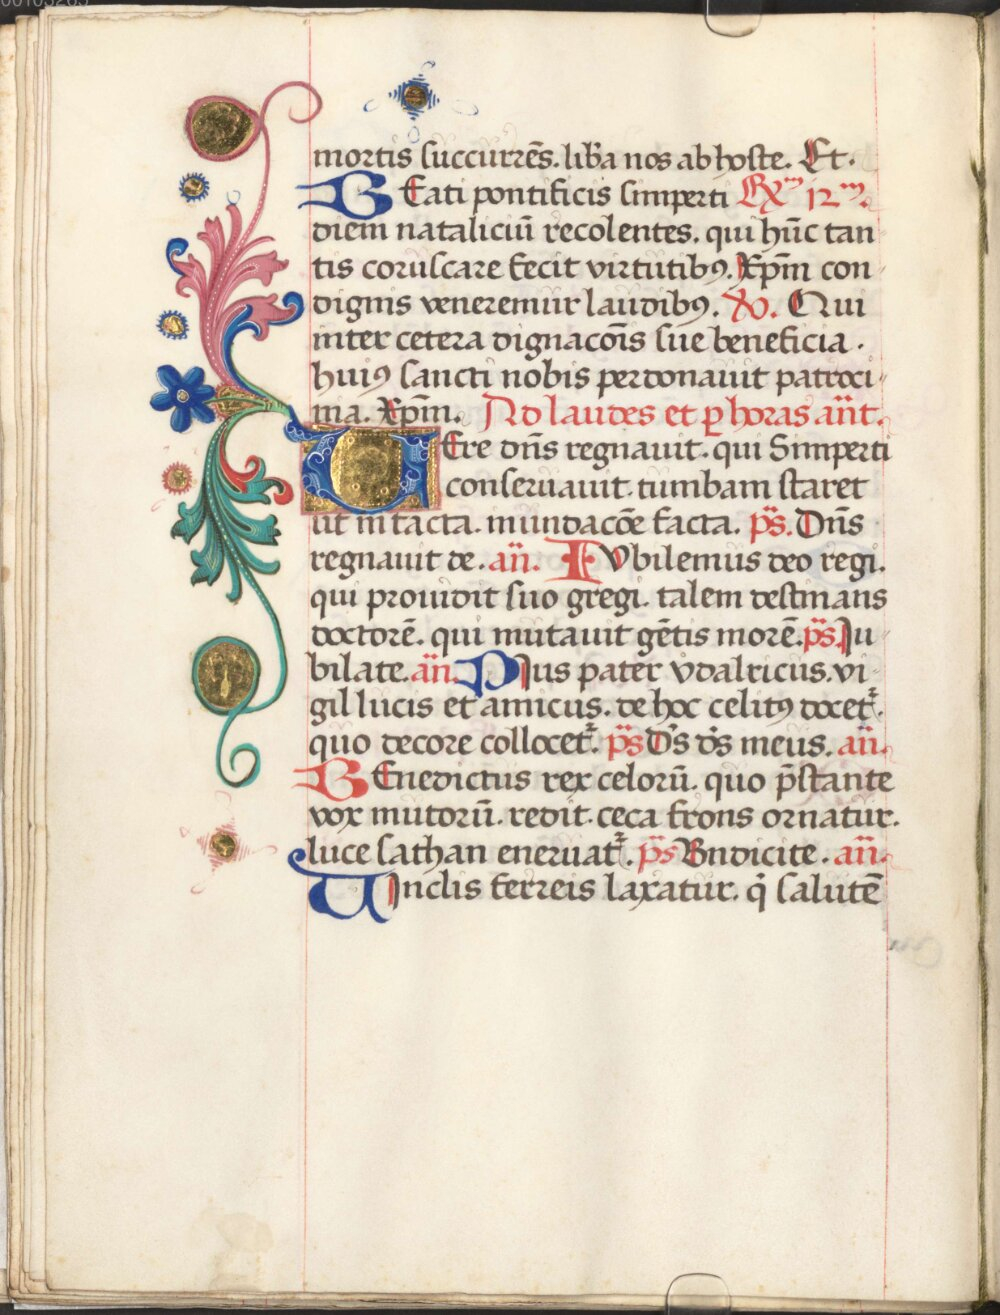 mortis succurrēs. lib̄a nos ab hoste. Et.
BEati pontificis simperti Rͫ 12ͫ.
diem nataliciū recolentes. qui hūc tan
tis coruscare fecit virtutibꝯ. Xp̄m con
dignis veneremur laudibꝯ. V̄. Qui
inter cetera dignacōis sue beneficia.
huiꝯ sancti nobis perdonauit patroci
nia. Xp̄m. Ad laudes et ꝑ horas an̄t.
VEre dn̄s regnauit. qui Simperti
conseruauit. tumbam staret
ut intacta. inundacōe facta. p̄s. Dn̄s
regnauit de. an̄. IVbilemus deo regi.
qui prouidit suo gregi. talem destinans
doctorē. qui mutauit gētis morē. p̄s. Ju
bilate. an̄. PIus pater vdalricus. vi
gil lucis et amicus. de hoc celitꝯ docet᷑.
quo decore collocet᷑. p̄s D̄s d̄s meus. an̄.
BEnedictus rex celorū. quo p̄stante
vox mutorū. redit. ceca frons ornatur.
luce sathan eneruat᷑. p̄s Bn̄dicite. an̄.
VInclis ferreis laxatur. q̇ salutē